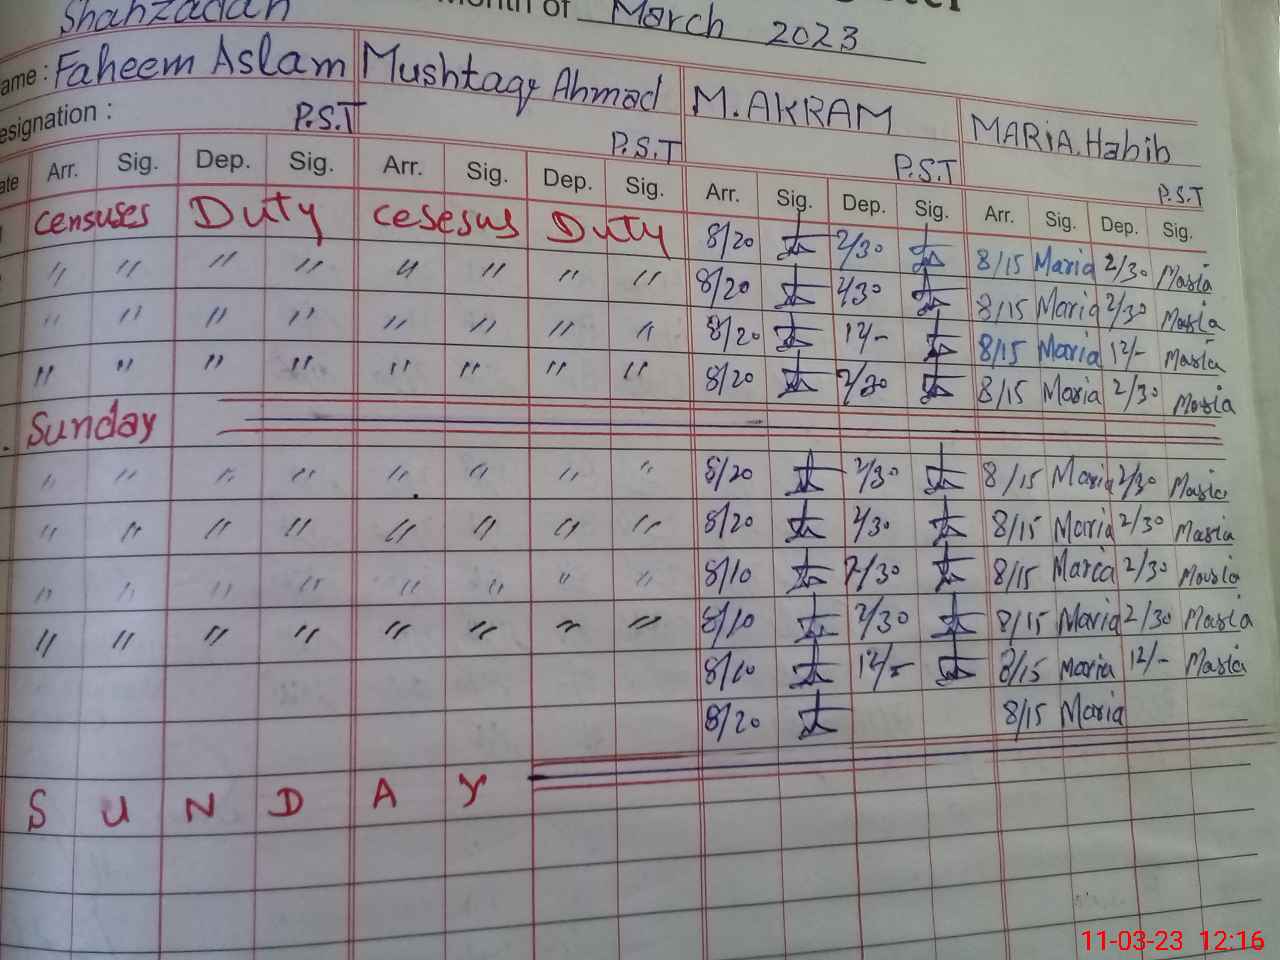 Shahzadah
Month of March 2023
ame : Faheem Aslam Mushtaqe Ahmad M. AKRAM MARiA. Habib
esignation : P.S.T P.S.T P.S.T P.S.T
ate Arr. Sig. Dep. Sig. Arr. Sig. Dep. Sig. Arr. Sig. Dep. Sig. Arr. Sig. Dep. Sig.
censuses Duty cesesus Duty 8/20 2/30 8/15 Maria 2/30 Maria
" " " " " " " " 8/20 2/30 8/15 Maria 2/30 Maria
" " " " " " " " 8/20 12/- 8/15 Maria 12/- Maria
" " " " " " " " 8/20 2/30 8/15 Maria 2/30 Maria
Sunday
" " " " " " " " 8/20 2/30 8/15 Maria 2/30 Maria
" " " " " " " " 8/20 2/30 8/15 Maria 2/30 Maria
" " " " " " " " 8/10 2/30 8/15 Maria 2/30 Maria
" " " " " " " " 8/10 2/30 8/15 Maria 2/30 Maria
8/10 12/- 8/15 Maria 12/- Maria
8/20 8/15 Maria
S U N D A Y
11-03-23 12:16